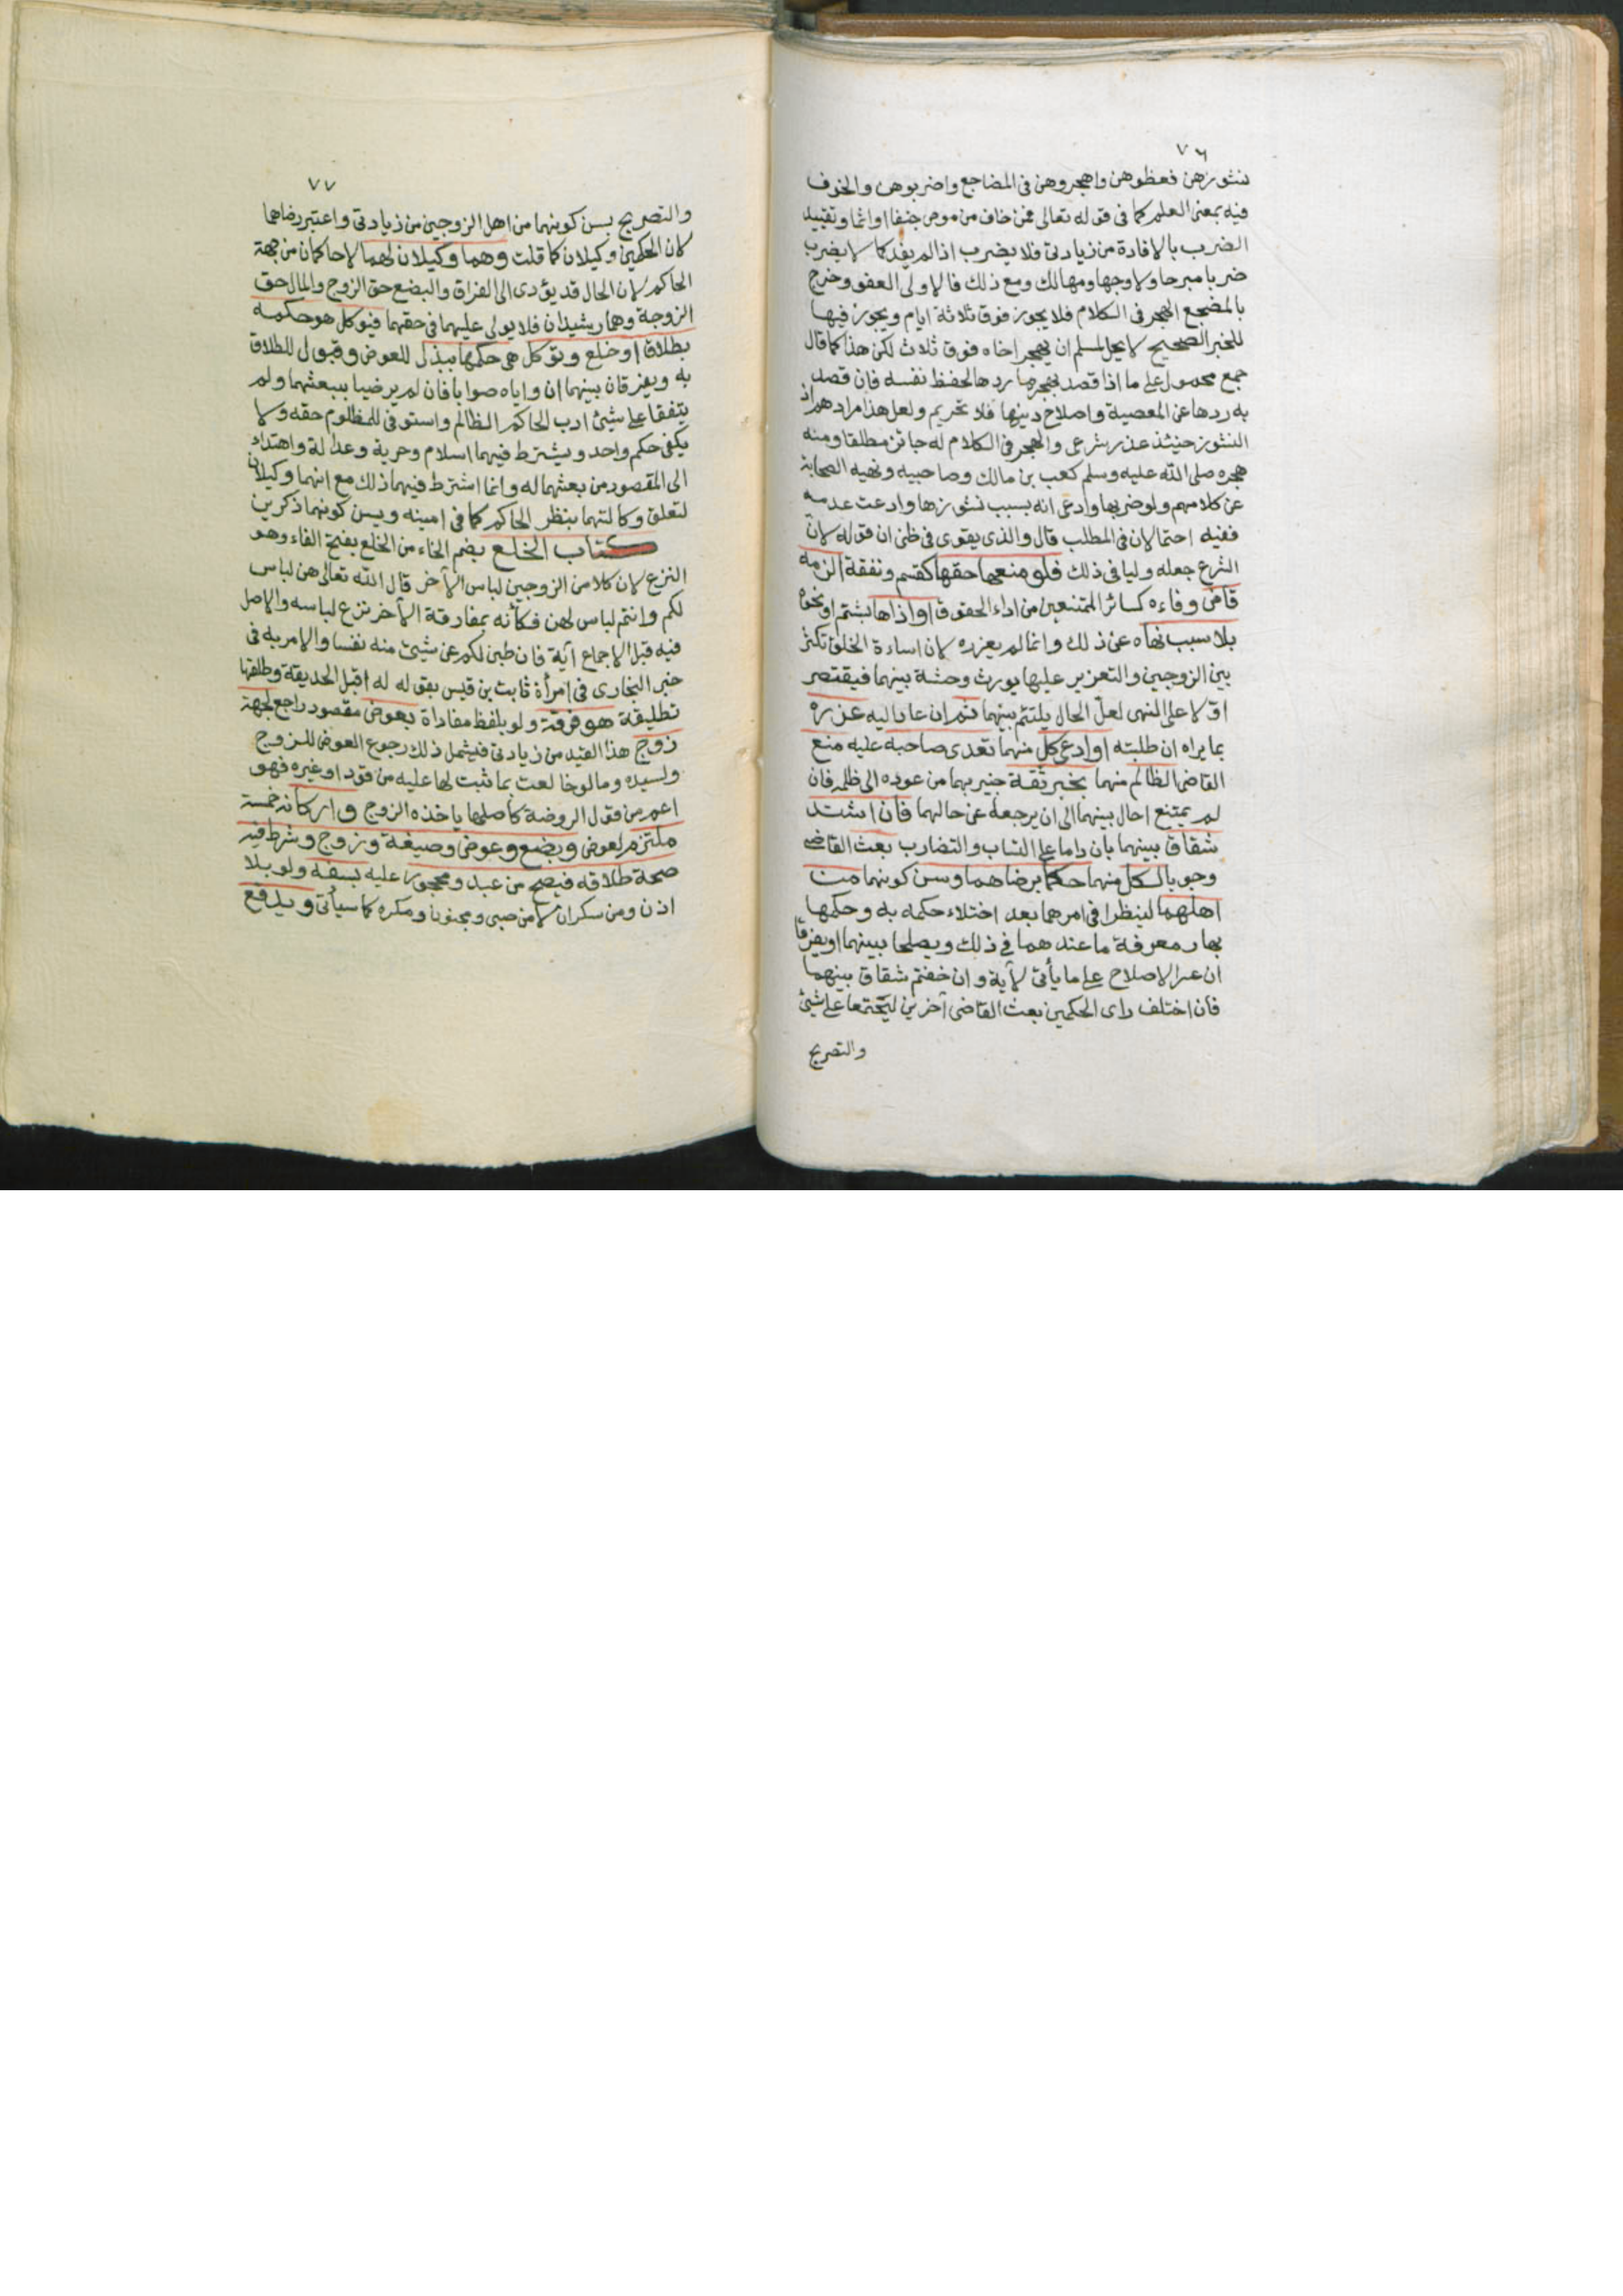 ٧٦
نشوزهن فعظوهن واهجروهن في المضاجع واضربوهن والخوف
فيه بمعنى العلم كما في قوله تعالى فمن خاف من موص جنفا او اثما وتقييد
الضرب بالافادة من زيادتي فلا يضرب اذا لم يفد كما لا يضرب
ضربا مبرحا ولا وجها ومهالك ومع ذلك فالاولى العفو وخرج
بالمضجع الهجر في الكلام فلا يجوز فوق ثلاثة ايام ويجوز فيها
للخبر الصحيح لا يحل لمسلم ان يهجر اخاه فوق ثلاث لكن هذا كما قال
جمع محمول على ما اذا قصد بهجرها ردها لحفظ نفسه فان قصد
به ردها عن المعصية واصلاح دينها فلا تحريم ولعل هذا مرادهم اذ
النشوز حينئذ عذر شرعي والهجر في الكلام له جائز مطلقا ومنه
هجره صلى الله عليه وسلم كعب بن مالك وصاحبيه ونهيه الصحابة
عن كلامهم ولو ضربها وادعى انه بسبب نشوزها وادعت عدمه
ففيه احتمالان في المطلب قال والذي يقوى في ظني ان قوله لان
الشرع جعله وليا في ذلك فلو منعها حقها كقسم ونفقة الزمه
قاض وفاءه كسائر الممتنعين من اداء الحقوق او اذاها بشتم او نحوه
بلا سبب نهاه عن ذلك وانما لم يعزره لان اساءة الخلق تكثر
بين الزوجين والتعزير عليها يورث وحشة بينهما فيقتصر
اولا على النهي لعل الحال يلتئم بينهما ثم ان عاد اليه عزره
بما يراه ان طلبته او ادعى كل منهما تعدى صاحبه عليه منع
القاضي الظالم منهما بخبر ثقة خبير بهما من عوده الى ظلمه فان
لم يمتنع احال بينهما الى ان يرجعا عن حالهما فان اشتد
شقاق بينهما بان داما على التساب والتضارب بعث القاضي
وجوبا لكل منهما حكما برضاهما وسن كونهما من
اهلهما لينظرا في امرهما بعد اختلاء حكمه به وحكمها
بها ومعرفة ما عندهما في ذلك ويصلحا بينهما او يفرقا
ان عسر الاصلاح على ما يأتي لآية وان خفتم شقاق بينهما
فان اختلف راى الحكمين بعث القاضي آخرين ليجتمعا على شئ
والتصريح
٧٧
والتصريح بسن كونهما من اهل الزوجين من زيادتي واعتبر رضاهما
لان الحكمين وكيلان كما قلت وهما وكيلان لهما لا حاكمان من جهة
الحاكم لان الحال قد يؤدى الى الفراق والبضع حق الزوج والمال حق
الزوجة وهما رشيدان فلا يولى عليهما في حقهما فيوكل هو حكمه
بطلاق او خلع وتوكل هي حكمها ببذل للعوض وقبول للطلاق
به ويفرقان بينهما ان راياه صوابا فان لم يرضيا ببعثهما ولم
يتفقا على شئ ادب الحاكم الظالم واستوفى للمظلوم حقه ولا
يكفى حكم واحد ويشترط فيهما اسلام وحرية وعدالة واهتداء
الى المقصود من بعثهما له وانما اشترط فيهما ذلك مع انهما وكيلان
لتعلق وكالتهما بنظر الحاكم كما في امينه ويسن كونهما ذكرين
كتاب الخلع بضم الخاء من الخلع بفتح الفاء وهو
النزع لان كلا من الزوجين لباس الآخر قال الله تعالى هن لباس
لكم وانتم لباس لهن فكأنه بمفارقة الآخر نزع لباسه والاصل
فيه قبل الاجماع آية فان طبن لكم عن شئ منه نفسا والامر به في
خبر البخاري في امرأة ثابت بن قيس بقوله له اقبل الحديقة وطلقها
تطليقة هو فرقة ولو بلفظ مفاداة بعوض مقصود راجع لجهة
زوج هذا القيد من زيادتي فيشمل ذلك رجوع العوض للزوج
ولسيده وما لو خالعت بما ثبت لها عليه من قود او غيره فهو
اعم من قول الروضة كاصلها ياخذه الزوج واركانه خمسة
ملتزم لعوض وبضع وعوض وصيغة وزوج وشرط فيه
صحة طلاقه فيصح من عبد ومحجور عليه بسفه ولو بلا
اذن ومن سكران لا من صبي ومجنون ومكره كما سيأتي ويدفع